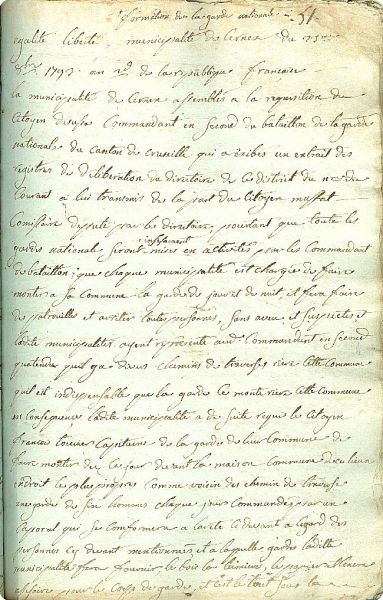 formation de la garde nationale - 31
egalité liberté, municipalité de Cernex du 25me
8bre 1793 an 2d de la republique francaise
la municipalité de Cernex assemblés a la requisition du
Citoyen Commandant en Second du bataillon de la garde
nationale du Canton de Cruseille qui a exibes un extrait des
registres de deliberation du directoire de Ce district du du
Courant a lui transmis de la part du Citoyen
Comissaire depute par le directoire, pourtant que toute les
incessament
gardes national Seront mises en activités pour les Commandant
de bataillon; que chaque municipalité est chargée de faire
monter a Sa Commune la garde de jour et de nuit, et fera faire
des patrouilles et arreter toutes personnes, Sans aveu et Suspectes et
ladite municipalité ayent représenté audit Commandant en Second
quil y a deux chemins de traverses riere Cette Commune
quil est indispensable que la garde Ce monte riere Cette Commune
en Consequence ladite municipalité a de Suite requis le Citoyen
francois Capitaine de la garde de leur Commune de
faire monter dès Ce Soir devant la maison Commune du lieu
endroit le plus propres Comme voisin des chemin de traverse
une garde de Six hommes chaque jour Commandés par un
Caporal qui Se Conformera a Cidevant a egard des
personnes Cy devant mentionnées, et a laquelle garde ladite
municipalité fera fournir le bois la le papier et l'encre
pour le Corps de garde, et est le tout Sous la